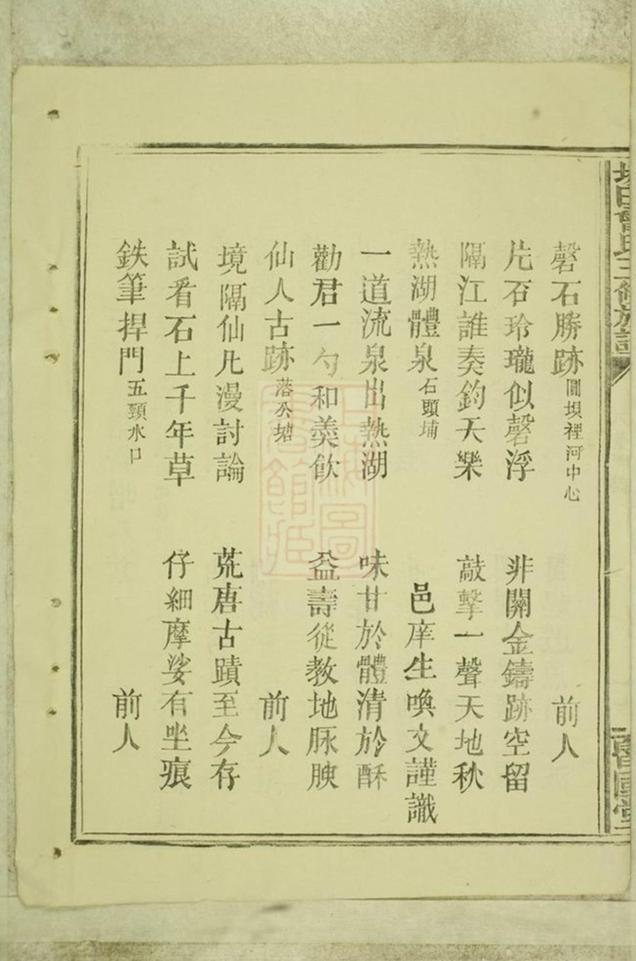 磬石勝跡 圓垻裡河中心 前人
片石玲瓏似磬浮 非關金鑄跡空留
隔江誰奏鈞天樂 敲擊一聲天地秋
熱湖體泉 石頭埔 邑庠生喚文謹識
一道流泉出熱湖 味甘於體清於酥
勸君一勺和羮飲 益壽從教地脉腴
仙人古跡 落公塘 前人
境隔仙凡漫討論 荒唐古蹟至今存
試看石上千年草 仔細摩娑有坐痕
鉄筆捍門 五頸水口 前人